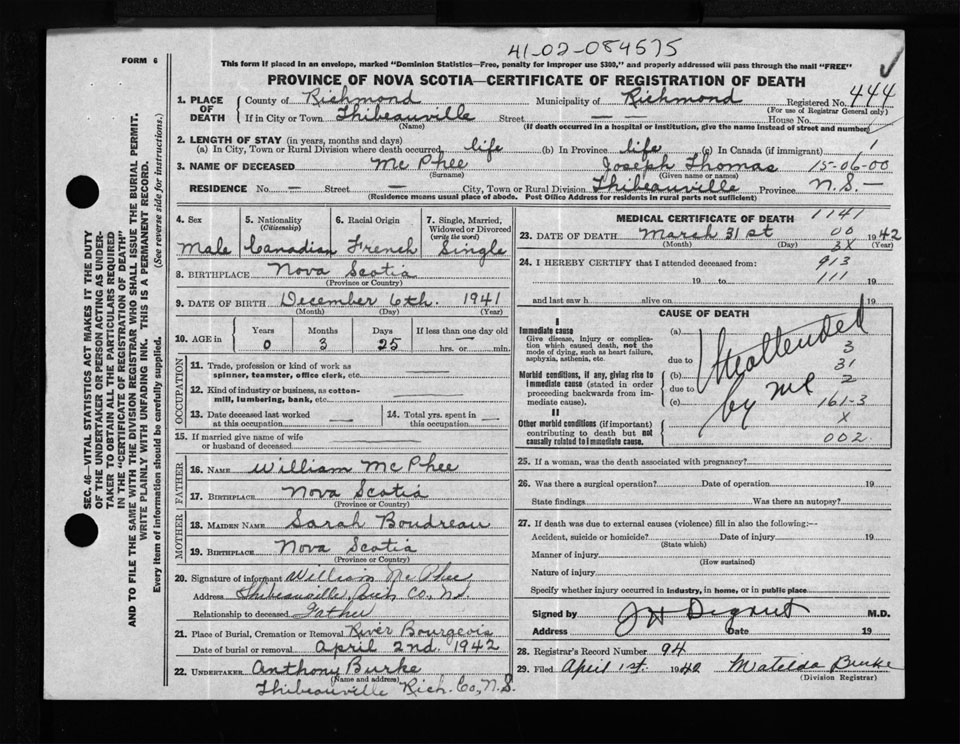 41-02-084575
FORM 6
This form if placed in an envelope, marked "Dominion Statistics—Free, penalty for improper use $300," and properly addressed will pass through the mail "FREE"
PROVINCE OF NOVA SCOTIA—CERTIFICATE OF REGISTRATION OF DEATH
1. PLACE OF DEATH { County of Richmond Municipality of Richmond Registered No. 444
(For use of Registrar General only)
If in City or Town Thibeauville Street — — House No.
(Name) (If death occurred in a hospital or institution, give the name instead of street and number)
2. LENGTH OF STAY (in years, months and days)
(a) In City, Town or Rural Division where death occurred life (b) In Province life (c) In Canada (if immigrant) 1
3. NAME OF DECEASED Mc Phee Joseph Thomas 15-06-00
(Surname) (Given name or names)
RESIDENCE No. — Street — City, Town or Rural Division Thibeauville Province N.S.—
(Residence means usual place of abode. Post Office Address for residents in rural parts not sufficient)
4. Sex 5. Nationality (Citizenship) 6. Racial Origin 7. Single, Married, Widowed or Divorced (write the word)
Male Canadian French Single
8. BIRTHPLACE Nova Scotia
(Province or Country)
9. DATE OF BIRTH December 6th. 1941
(Month) (Day) (Year)
10. AGE in Years Months Days If less than one day old
0 3 25 — hrs. or min.
OCCUPATION
11. Trade, profession or kind of work as spinner, teamster, office clerk, etc.
12. Kind of industry or business, as cotton-mill, lumbering, bank, etc.
13. Date deceased last worked at this occupation 14. Total yrs. spent in this occupation
15. If married give name of wife or husband of deceased
FATHER
16. NAME William Mc Phee
17. BIRTHPLACE Nova Scotia
(Province or Country)
MOTHER
18. MAIDEN NAME Sarah Boudreau
19. BIRTHPLACE Nova Scotia
(Province or Country)
20. Signature of informant William Mc Phee
Address Thibeauville, Rich Co, N.S.
Relationship to deceased Father
21. Place of Burial, Cremation or Removal River Bourgeois
Date of burial or removal April 2nd. 1942
22. UNDERTAKER Anthony Burke
(Name and address)
Thibeauville Rich. Co, N.S.
MEDICAL CERTIFICATE OF DEATH 1141
23. DATE OF DEATH March 31st 00 1942
(Month) (Day) 3X (Year)
24. I HEREBY CERTIFY that I attended deceased from: 913
19 to 111 19
and last saw h alive on 19
CAUSE OF DEATH
I
Immediate cause
Give disease, injury or complication which caused death, not the mode of dying, such as heart failure, asphyxia, asthenia, etc.
(a)
due to
Morbid conditions, if any, giving rise to immediate cause (stated in order proceeding backwards from immediate cause).
(b)
due to
(c)
Unattended
by me
3
31
2
161-3
X
002
II
Other morbid conditions (if important) contributing to death but not causally related to immediate cause.
25. If a woman, was the death associated with pregnancy?
26. Was there a surgical operation? Date of operation 19
State findings Was there an autopsy?
27. If death was due to external causes (violence) fill in also the following:—
Accident, suicide or homicide? Date of injury 19
(State which)
Manner of injury
(How sustained)
Nature of injury
Specify whether injury occurred in industry, in home, or in public place
Signed by M.D.
Address Date 19
28. Registrar's Record Number 94
29. Filed April 1st. 1942 Matelda Burke
(Division Registrar)
SEC. 46—VITAL STATISTICS ACT MAKES IT THE DUTY
OF THE UNDERTAKER OR PERSON ACTING AS UNDER-
TAKER TO OBTAIN ALL THE PARTICULARS REQUIRED
IN THE "CERTIFICATE OF REGISTRATION OF DEATH"
AND TO FILE THE SAME WITH THE DIVISION REGISTRAR WHO SHALL ISSUE THE BURIAL PERMIT.
WRITE PLAINLY WITH UNFADING INK. THIS IS A PERMANENT RECORD.
Every item of information should be carefully supplied. (See reverse side for instructions.)